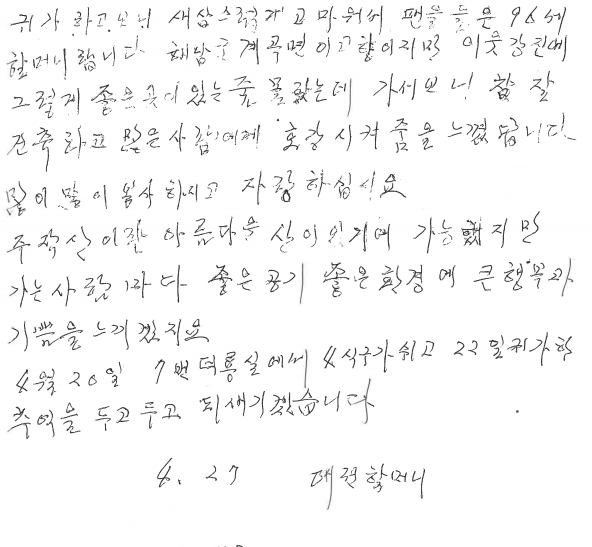 귀가 하고보니 새삼스럽게 고마워서 팬을 들은 96세
할머니랍니다 해남군 계곡면이 고향이지만 이웃 강진에
그렇게 좋은곳이 있는줄 몰랐는데 가서보니 참 잘
건축하고 많은사람에게 호강시켜줌을 느꼈답니다
많이 많이 봉사하시고 자랑하십시요
주작산이란 아름다운 산이있기에 가능했지만
가는사람마다 좋은 공기 좋은환경에 큰행복과
기쁨을 느끼겠지요
4월 20일 7번 덕룡실에서 4식구가 쉬고 22일 귀가하
추억을 두고두고 되새기겠습니다
4. 27 대전할머니